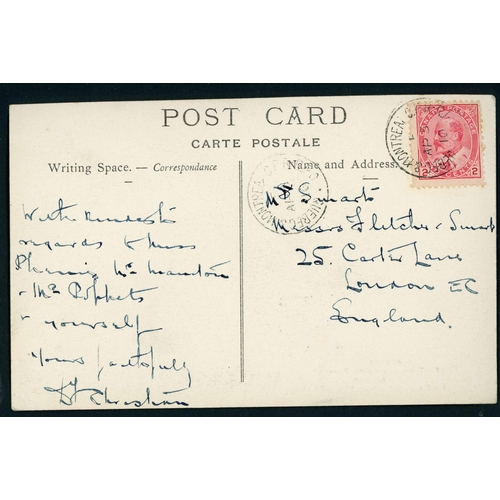 POST CARD
CARTE POSTALE
Writing Space. — Correspondance
Name and Address.
With kindest
regards to Miss
Mr
& Mr Poppets
& yourself
Yours faithfully
Mr Smart
Messrs Fletcher & Smart
25. Carter Lane
London EC
England.
MONTREAL
QUEBEC
AP
10
2
2